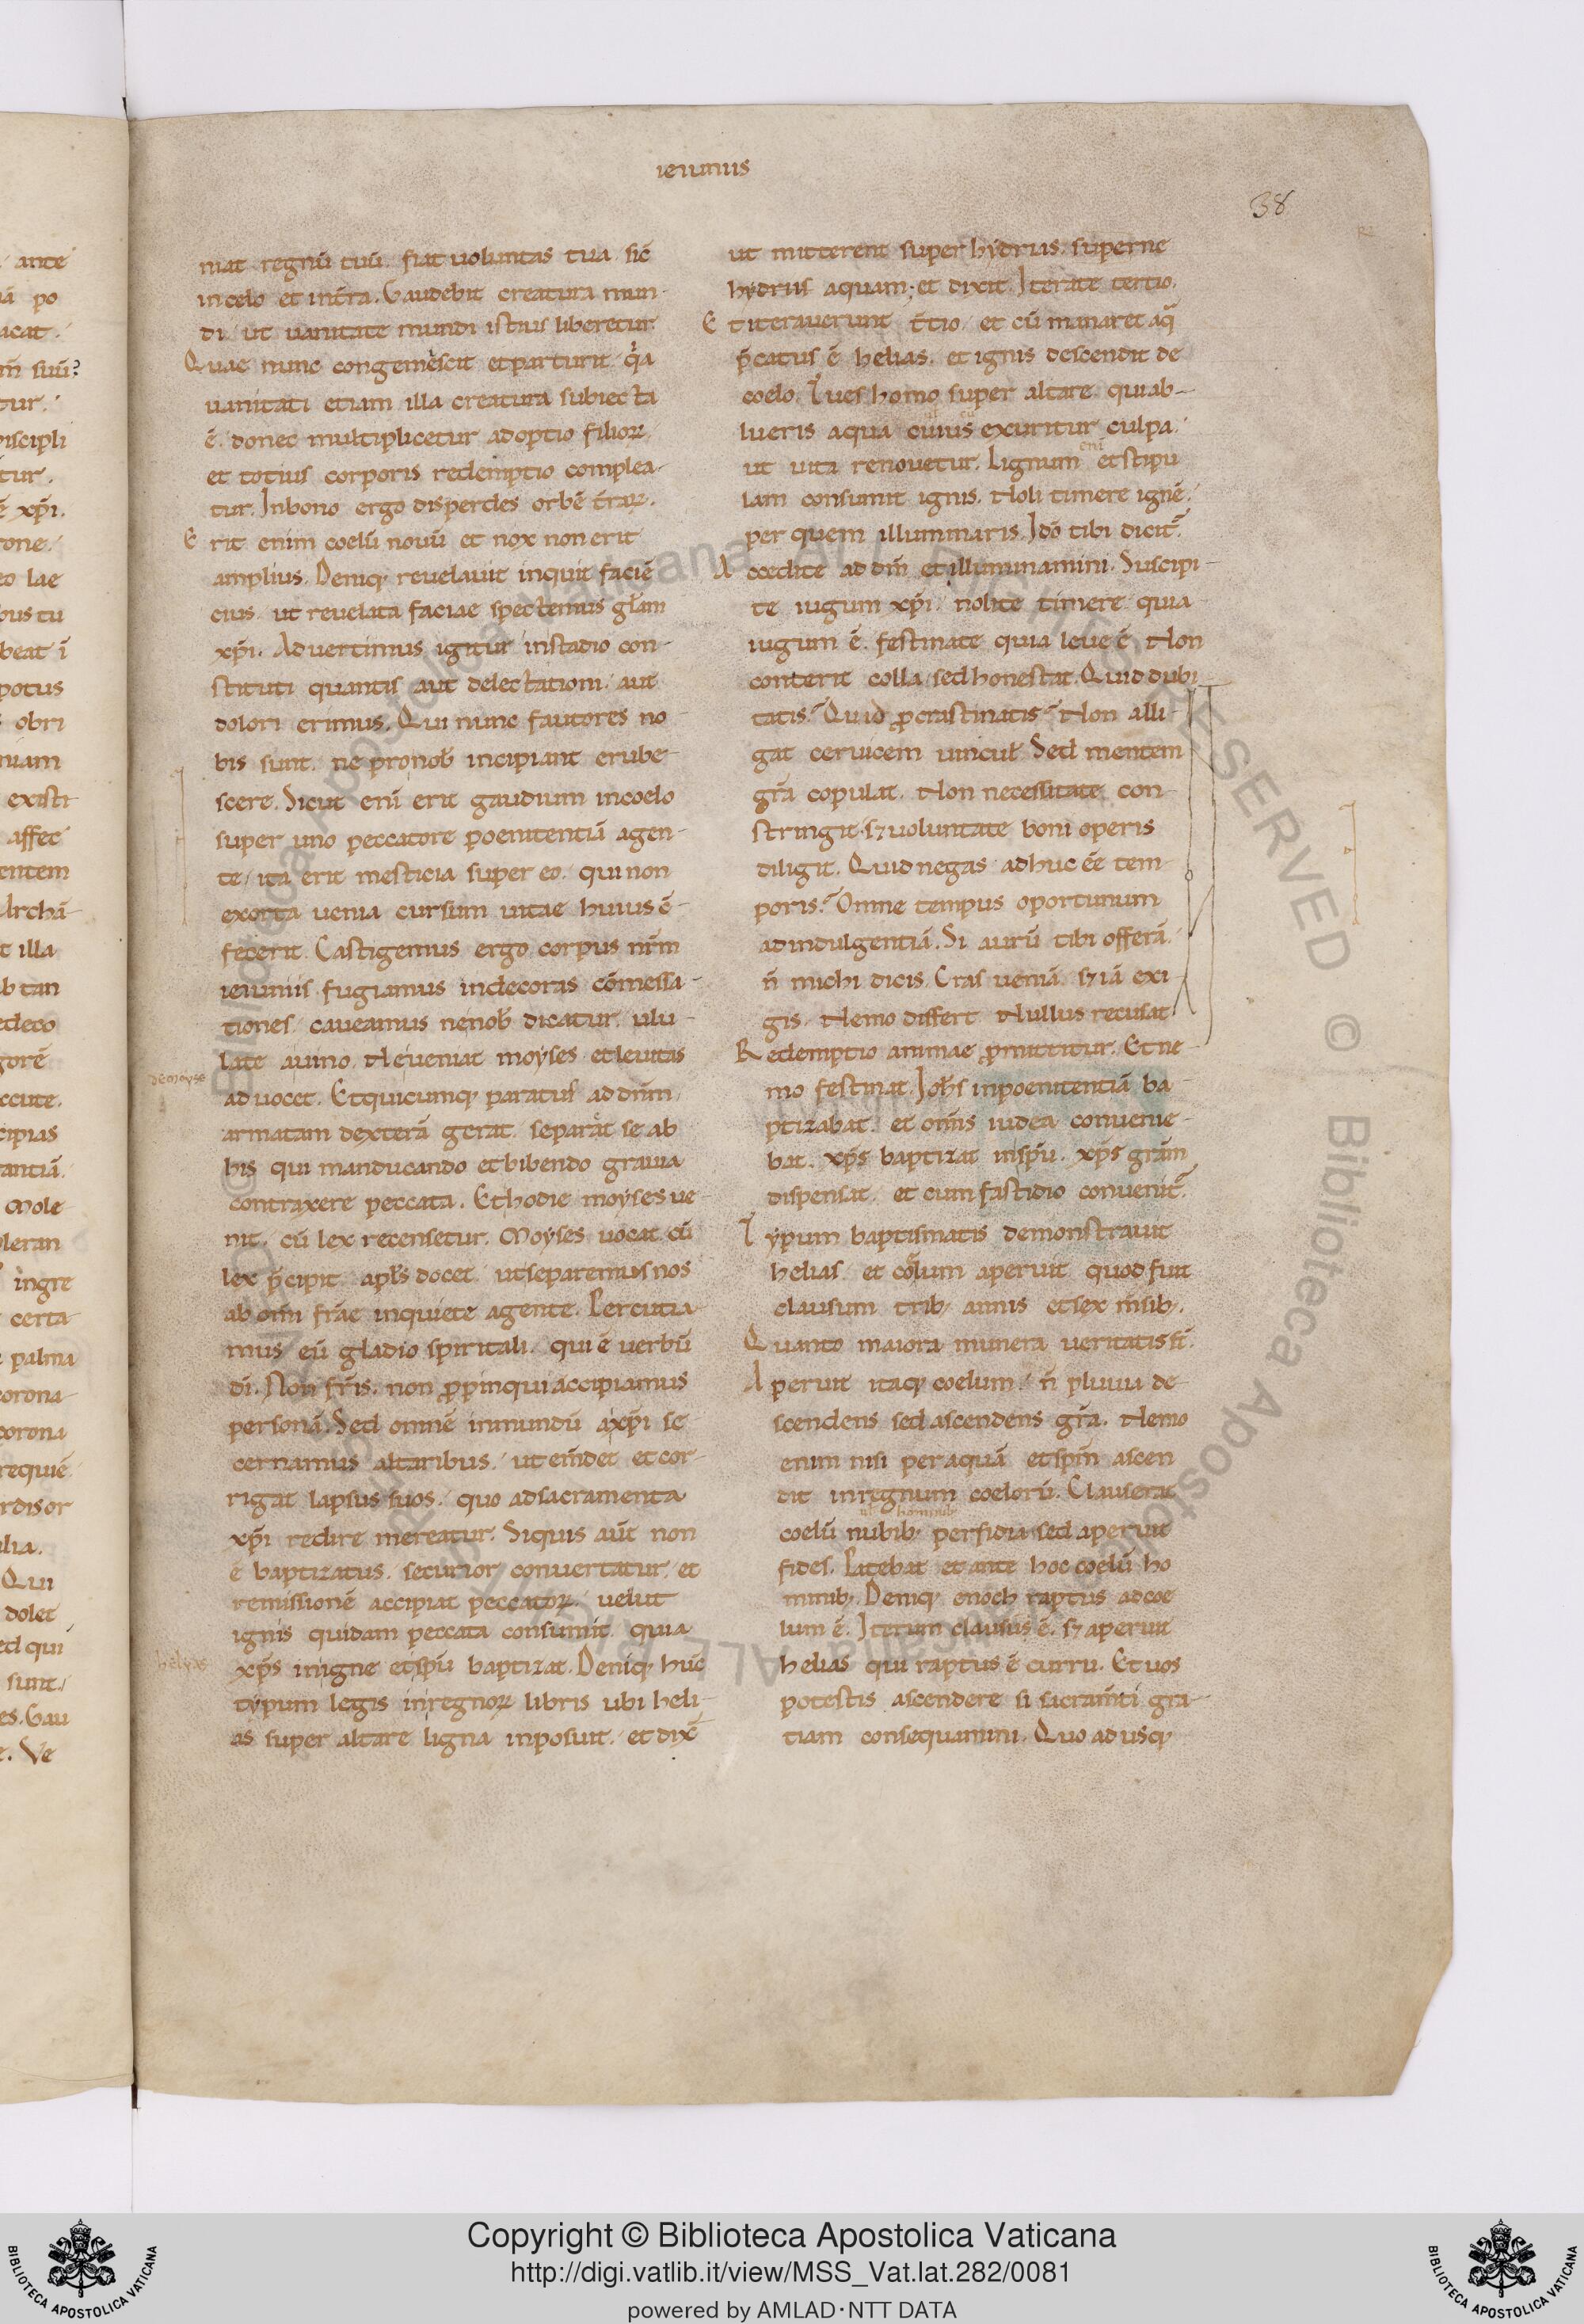 ieiuniis
38
niat regnū tuū. fiat uoluntas tua sic̄
incelo et int̄ra. Gaudebit creatura mun-
di. ut uanitate mundi istius liberetur.
Quae nunc congemescit etparturit. qa
uanitati etiam illa creatura subiecta
ē. donec multiplicetur adoptio filioꝝ,
et totius corporis redemptio complea-
tur. Inbono ergo disperdes orbē t̄raꝝ.
Erit enim coelū nouū et nox non erit
amplius. Deniq; reuelauit inquit faciē
eius. ut reuelata faciae spectemus gl̄am
xp̄i. Aduertimus igitur instadio con-
stituti quantis aut delectationi. aut
dolori erimus. Qui nunc fautores no-
bis sunt. ne pronob̄ incipiant erube-
scere. Sicut eni̅ erit gaudium incoelo
super uno peccatore poenitentiā agen-
te, ita erit mesticia super eo. qui non
exorta uenia cursum uitae huius ē-
fecerit. Castigemus ergo corpus nr̄m
ieiuniis fugiamus indecoras cōmessa-
tiones. caueamus nenob̄ dicatur. ulu-
late auino. Neueniat moyses etleuitas
demoyse
aduocet. Etquicumq; paratus addn̄m
armatam dexterā gerat. separat se ab
his qui manducando etbibendo grauia
contraxere peccata. Ethodie moyses ue-
nit. cū lex recensetur. Moyses uocat. cū
lex p̄cipit. apl̄s docet. utseparemus nos
ab om̄i fr̄ae inquiete agente. Percutia-
mus eū gladio spiritali. qui ē uerbū
dī. Non fr̄is. non ꝓpinqui accipiamus
personā. Sed omnē inmundū axp̄i se-
cernamus altaribus. ut em̄det et cor-
rigat lapsus suos. quo adsacramenta
xp̄i redire mereatur. Siquis aūt non
ē baptizatus. securior conuertatur. et
remissionē accipiat peccatoꝝ. uelut
ignis quidam peccata consumit. quia
xp̄s inigne etsp̄u baptizat. Deniq; huc
helyas
typum legis inregnoꝝ libris ubi heli-
as super altare ligna inposuit. et dix̄
ut mitterent super hydrias. superne
hydriis aquam; et dixit. Iterate tertio.
Et iterauerunt t̄tio. et cū manaret aq̄
p̄catus ē helias. et ignis descendit de
coelo. Tu es homo super altare. qui ab-
lueris aqua cuius exuritur culpa.
ut uita renouetur. Lignum enī etstipu
lam consumit ignis. Noli timere ignē.
per quem illuminaris. Ideo tibi dicit̄.
Accedite ad dm̄ et illuminamini. Suscipi-
te iugum xp̄i. nolite timere quia
iugum ē. festinate quia leue ē. Non
conterit colla. sed honestat. Quid dubi
tatis? Quid ꝓcrastinatis? Non alli-
gat ceruicem uincul̄. Sed mentem
gr̄a copulat. Non necessitate con-
stringit. sꝫ uoluntate boni operis
diligit. Quid negas adhuc ēe tem-
poris? Omne tempus oportunum
adindulgentiā. Si aurū tibi offerā.
n̄ michi dicis. Cras ueniā. sꝫ iā exi-
gis. Nemo differt. Nullus recusat
Redemptio animae ꝓmittitur. Et ne-
mo festinat. Joh̄s inpoenitentiā ba-
ptizabat. et om̄is iudea conuenie-
bat. xp̄s baptizat insp̄u. xp̄s grām
dispensat. et cum fastidio conuenit̄.
Typum baptismatis demonstrauit
helias. et coelum aperuit quod fuit
clausum trib; annis et sex m̄sib;.
Quanto maiora munera ueritatis st̄.
Aperuit itaq; coelum. n̄ pluuia de-
scendens sed ascendens gr̄a. Nemo
enim nisi peraquā etsp̄m ascen
dit inregnum coelorū. Clauserat
ul̄ hominib;
coelū nubib; perfidia sed aperuit
fides. Patebat et ante hoc coelū ho
minib;. Deniq; enoch raptus adcoe
lum ē. Iterum clausus ē. sꝫ aperuit
helias qui raptus ē curru. Et uos
potestis ascendere si sacram̄ti gra-
tiam consequamini. Quo adusq;
Copyright © Biblioteca Apostolica Vaticana
http://digi.vatlib.it/view/MSS_Vat.lat.282/0081
powered by AMLAD·NTT DATA
BIBLIOTECA APOSTOLICA VATICANA
BIBLIOTECA APOSTOLICA VATICANA